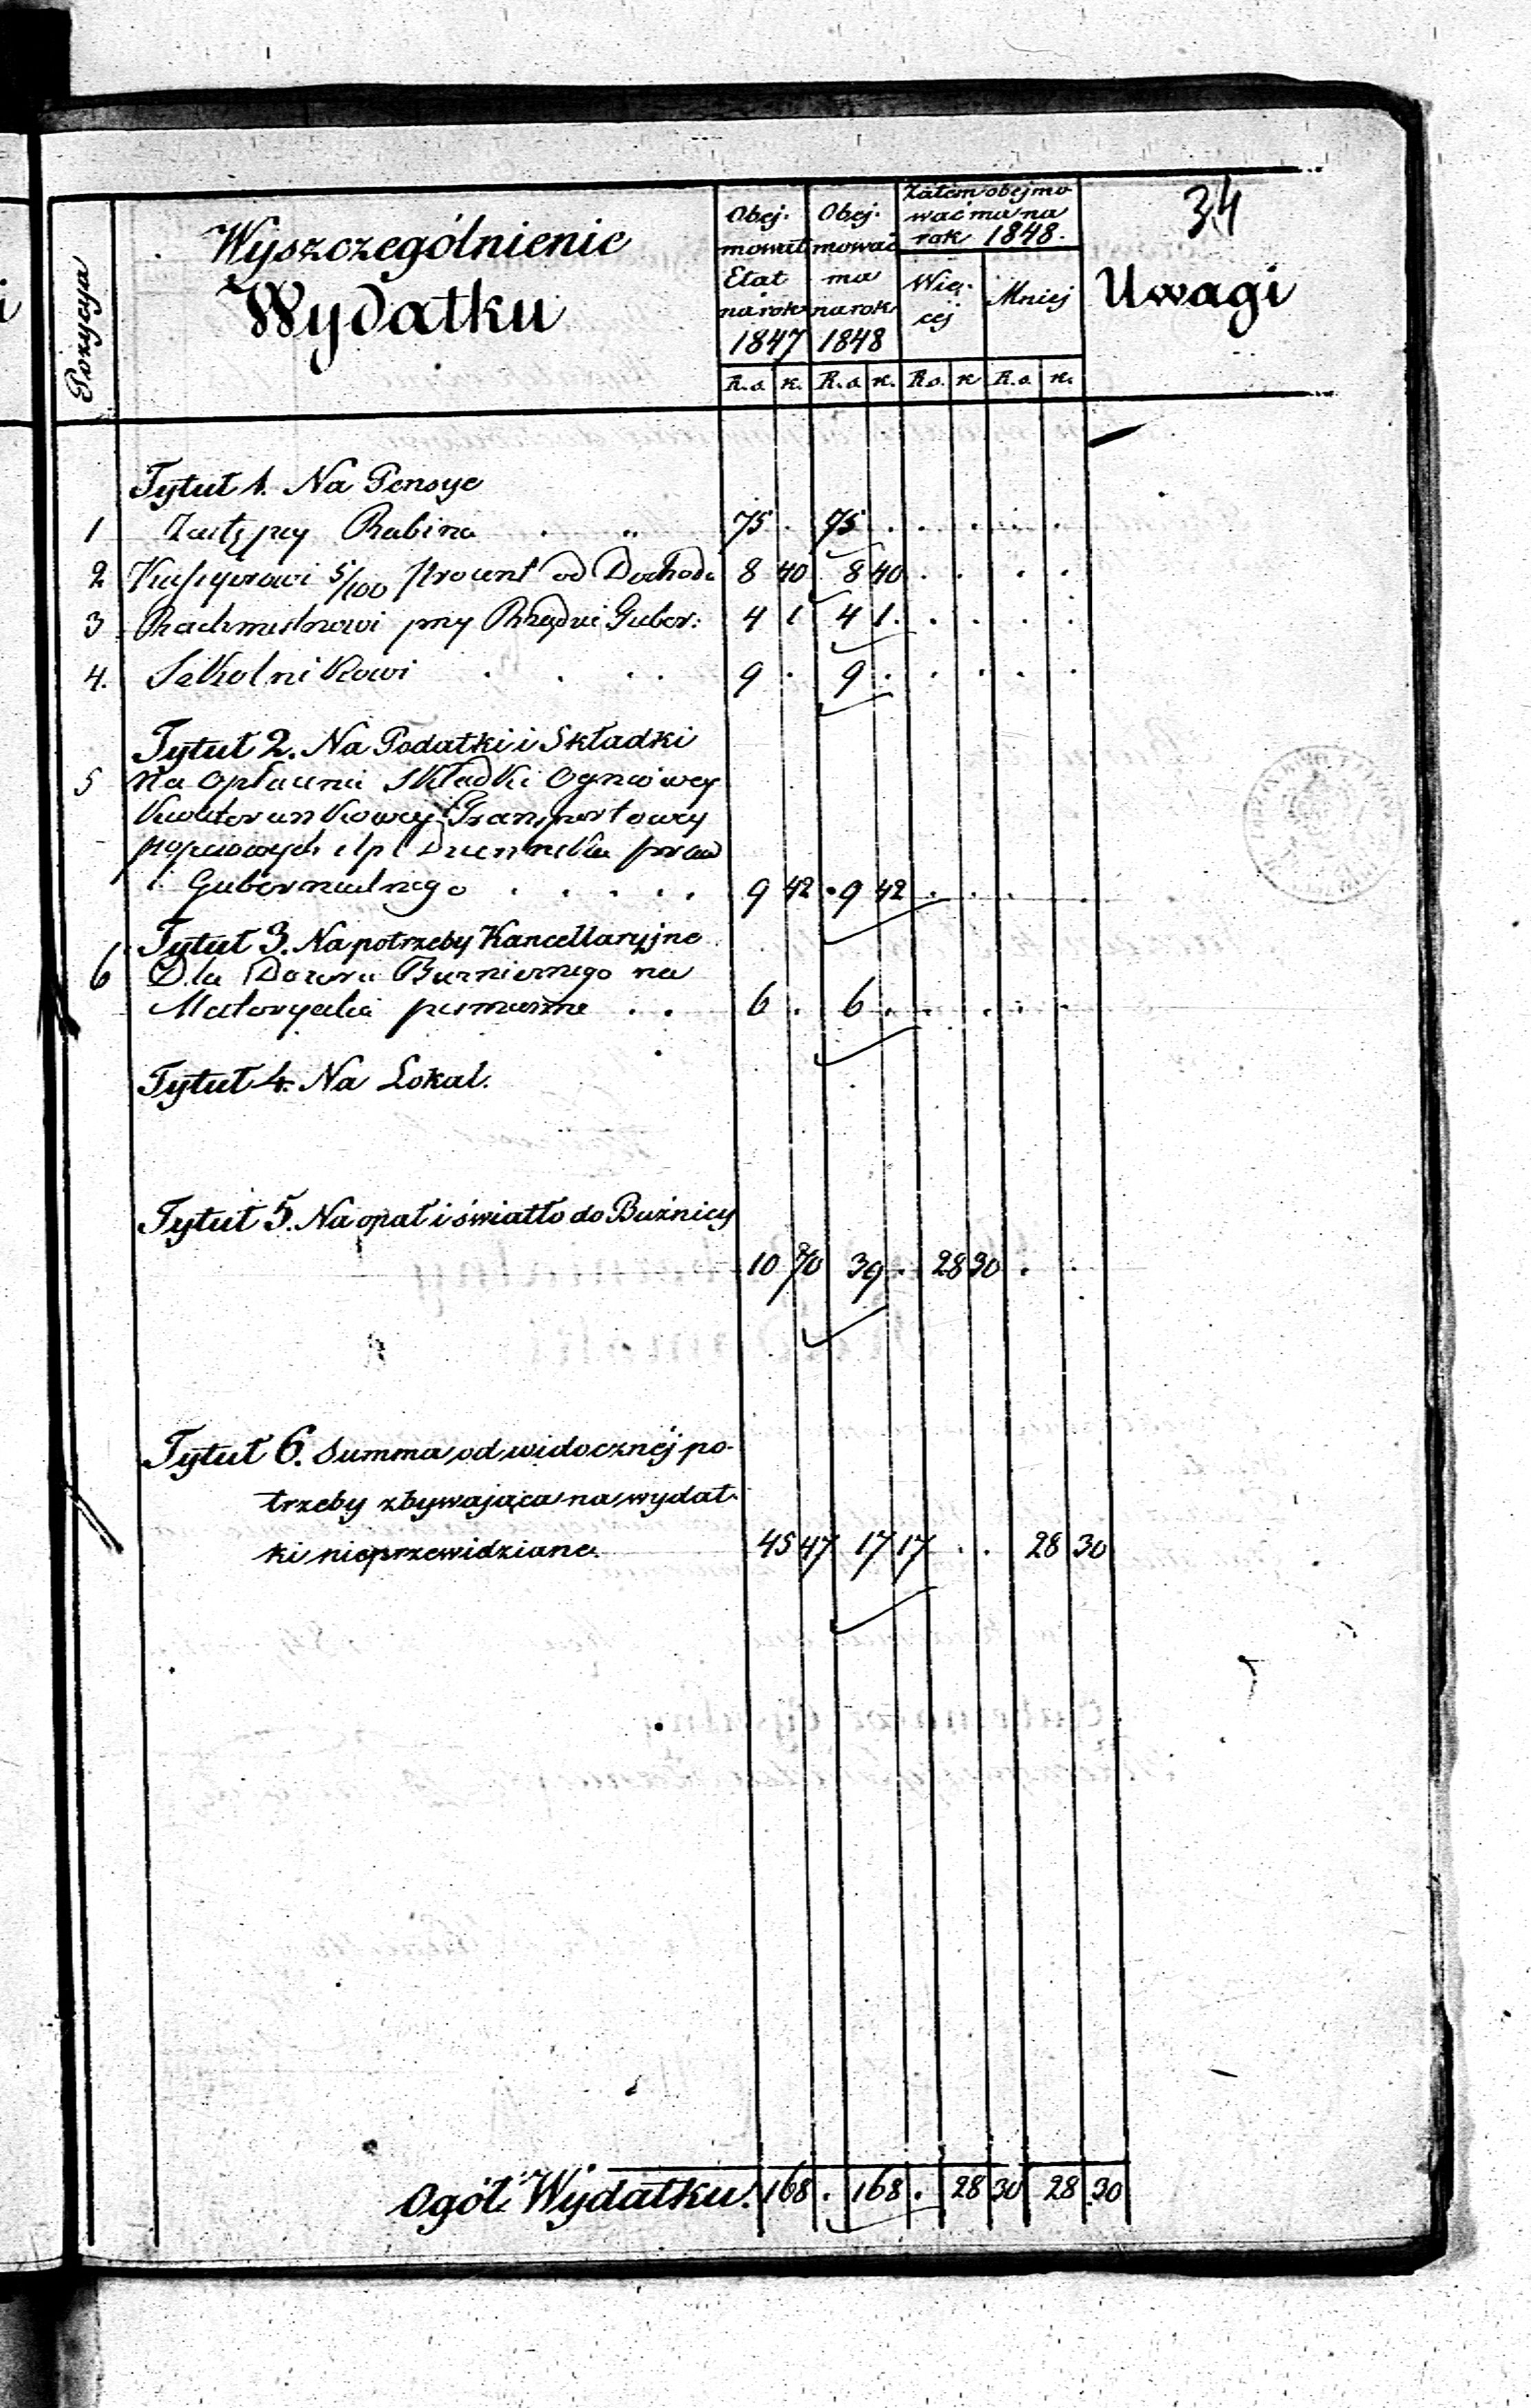 34
Pozycya
Wyszczególnienie
Wydatku
Obej-
mował
Etat
na rok
1847
Obej-
mować
ma
na rok
1848
Zatem obejmo
wać ma na
rok 1848.
Wię-
cej
Mniej
Uwagi
R.s. k. R.s. k. R.s. k. R.s. k.
Tytuł 1. Na Pensye
1 Zastępcy Rabina 75 . 75 .
2 Kassyerowi 5/100 Procent od Dochodu 8 40 8 40
3 Rachmistrzowi przy Rządzie Guber: 4 1 4 1
4. Szkolnikowi 9 . 9 .
Tytuł 2. Na Podatki i Składki
5 Na opłacenie składki Ogniowey
Kwaterunkowey Transportowey
Dziennika praw
i Gubernialnego 9 42 9 42
Tytuł 3. Na potrzeby Kancellaryjne
6 Dla Dozoru Bużniczego na
Materyalia piśmienne 6 . 6 .
Tytuł 4. Na Lokal.
Tytuł 5. Na opał i światło do Bużnicy
10 70 39 . 28 30
Tytuł 6. Summa od widocznéj po-
trzeby zbywająca na wydat-
ki nieprzewidziane. 45 47 17 17 . . 28 30
Ogół Wydatku. 168 . 168 . 28 30 28 30